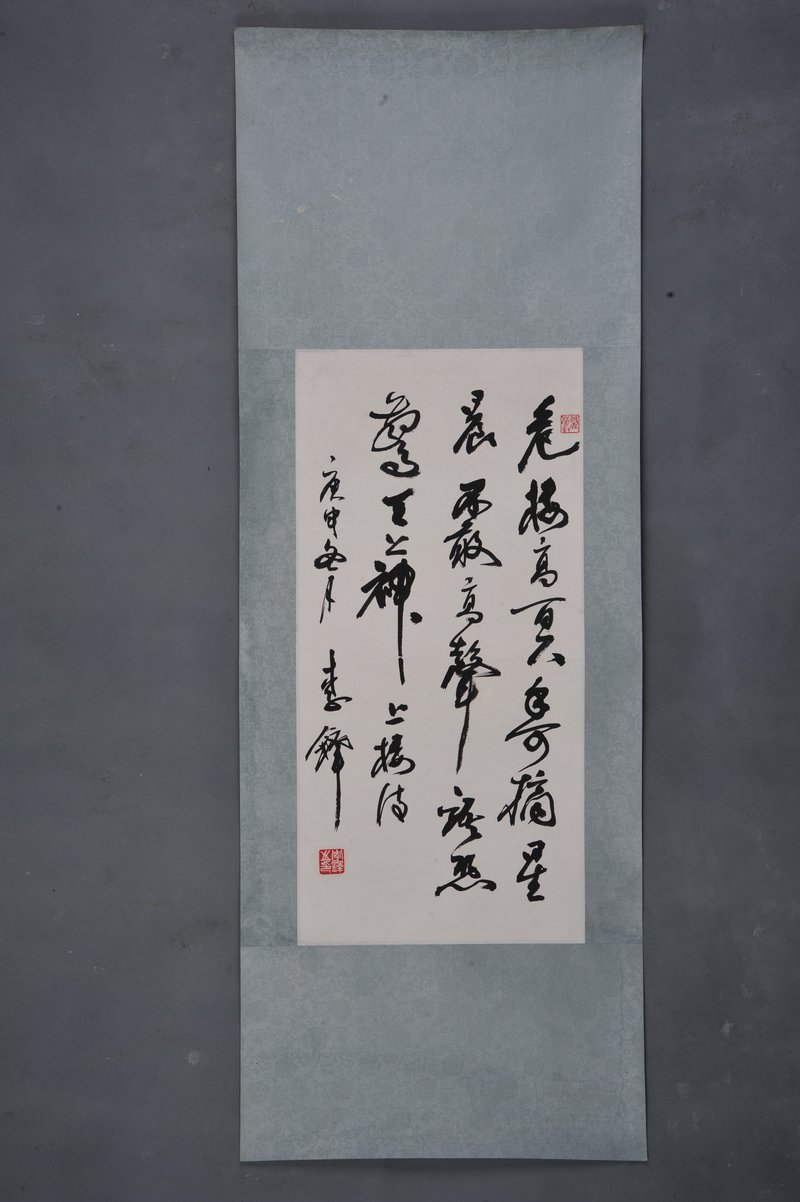 危楼高百尺手可摘星
晨不敢高聲語恐
驚天上神 上楼诗
庚申冬月 李鐸